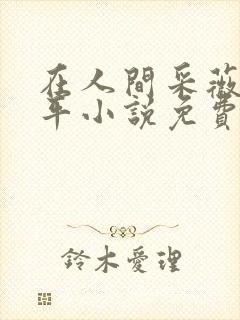 在人間采薇
年小説免費
鈴木愛理